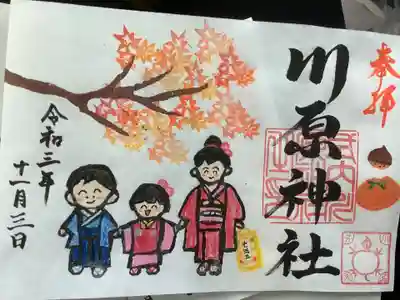 奉拝
川原神社
令和三年
十一月三日